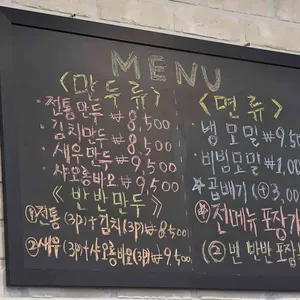 MENU
<만두류>
· 전통만두 ₩8,500
· 김치만두 ₩8,500
· 새우만두 ₩9,500
· 샤오롱바오 ₩9,500
<반반만두>
①전통(3p)+김치(3p) ₩8,500
②새우(3p)+샤오롱바오(3p) ₩9,500
<면류>
· 냉모밀 ₩9,5
· 비빔모밀 ₩1,00
· 곱배기 (+3,00
* 전메뉴 포장가
(② 반반 포장